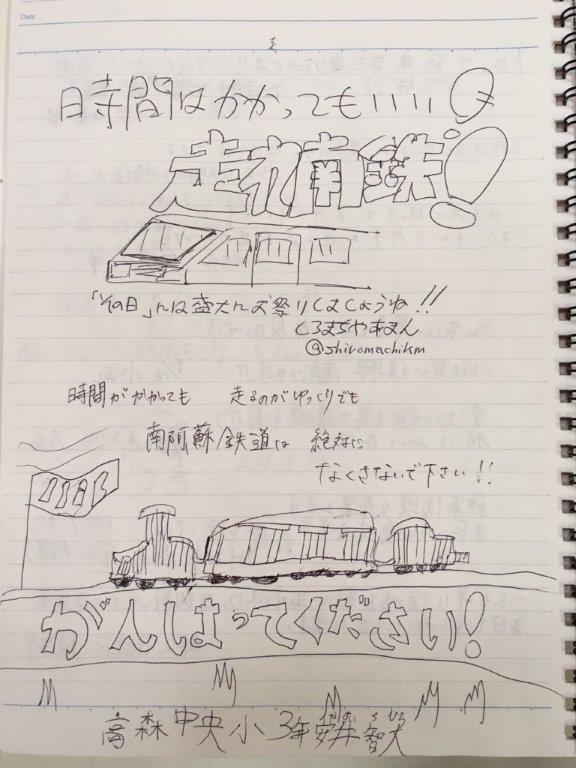 Date
時間はかかってもいい!
走れ南鉄!
「その日」には盛大にお祭りしましょうね!!
@shiromachikm
時間がかかっても 走るのがゆっくりでも
南阿蘇鉄道は 絶対に
なくさないで下さい!!
がんばってください!
高森中央小3年